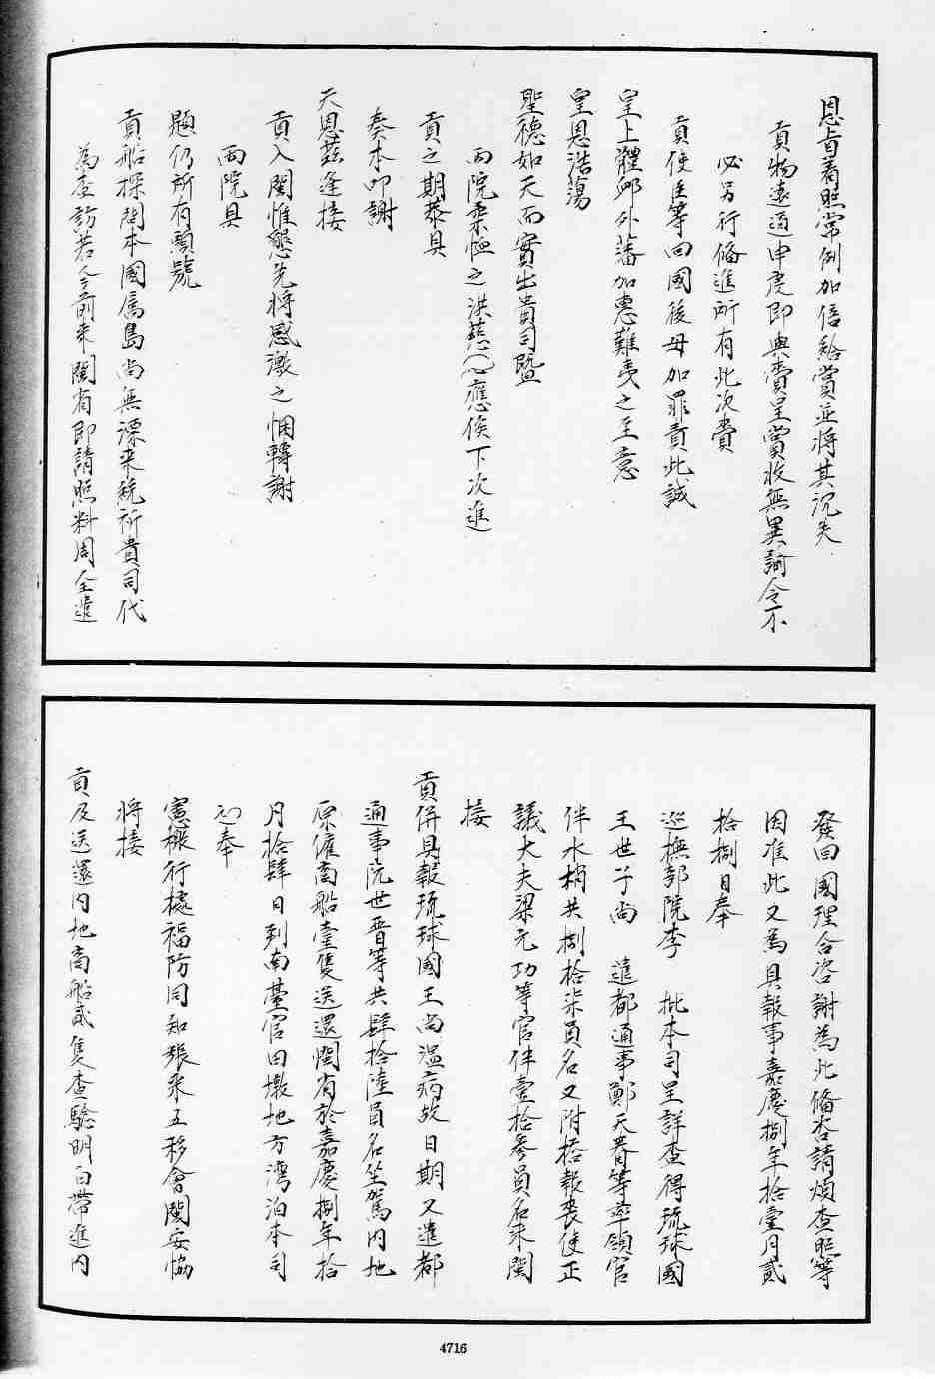 恩旨着照常例加倍給賞並將其沉失
貢物遠道申虔即與賫呈賞收無異詞令不
必另行俻進所有此次賫
貢使臣等回國後毋加罪責此誠
皇上體邺外藩加惠難夷之至意
皇恩浩蕩
聖德如天而實出貴司暨
兩院柔恤之洪慈也應俟下次進
貢之期恭具
奏本叩謝
天恩茲逢接
貢入閩惟懇先將感激之悃轉謝
兩院具
題仍所有頭號
貢船探問本國属島尚無漂来統祈貴司代
為查訪若令前来閩省即請照料周全遣
發回國理合咨謝為此俻咨請煩查照等
因准此又為具報事嘉慶捌年拾壹月貳
拾捌日奉
巡撫部院李 批本司呈詳查得琉球國
王世子尚 遣都通事鄭天眷等率領官
伴水梢共捌拾柒員名又附搭報喪使正
議大夫梁元功等官伴壹拾參員名来閩
接
貢併具報琉球國王尚温病故日期又遣都
通事阮世晋等共肆拾陸員名坐駕内地
原僱商船壹隻送還閩省於嘉慶捌年拾
月拾肆日到南臺官田墩地方灣泊本司
已奉
憲檄行據福防同知張来五移會閩安協
將接
貢及送還内地商船貳隻查驗明白帶進内
4716